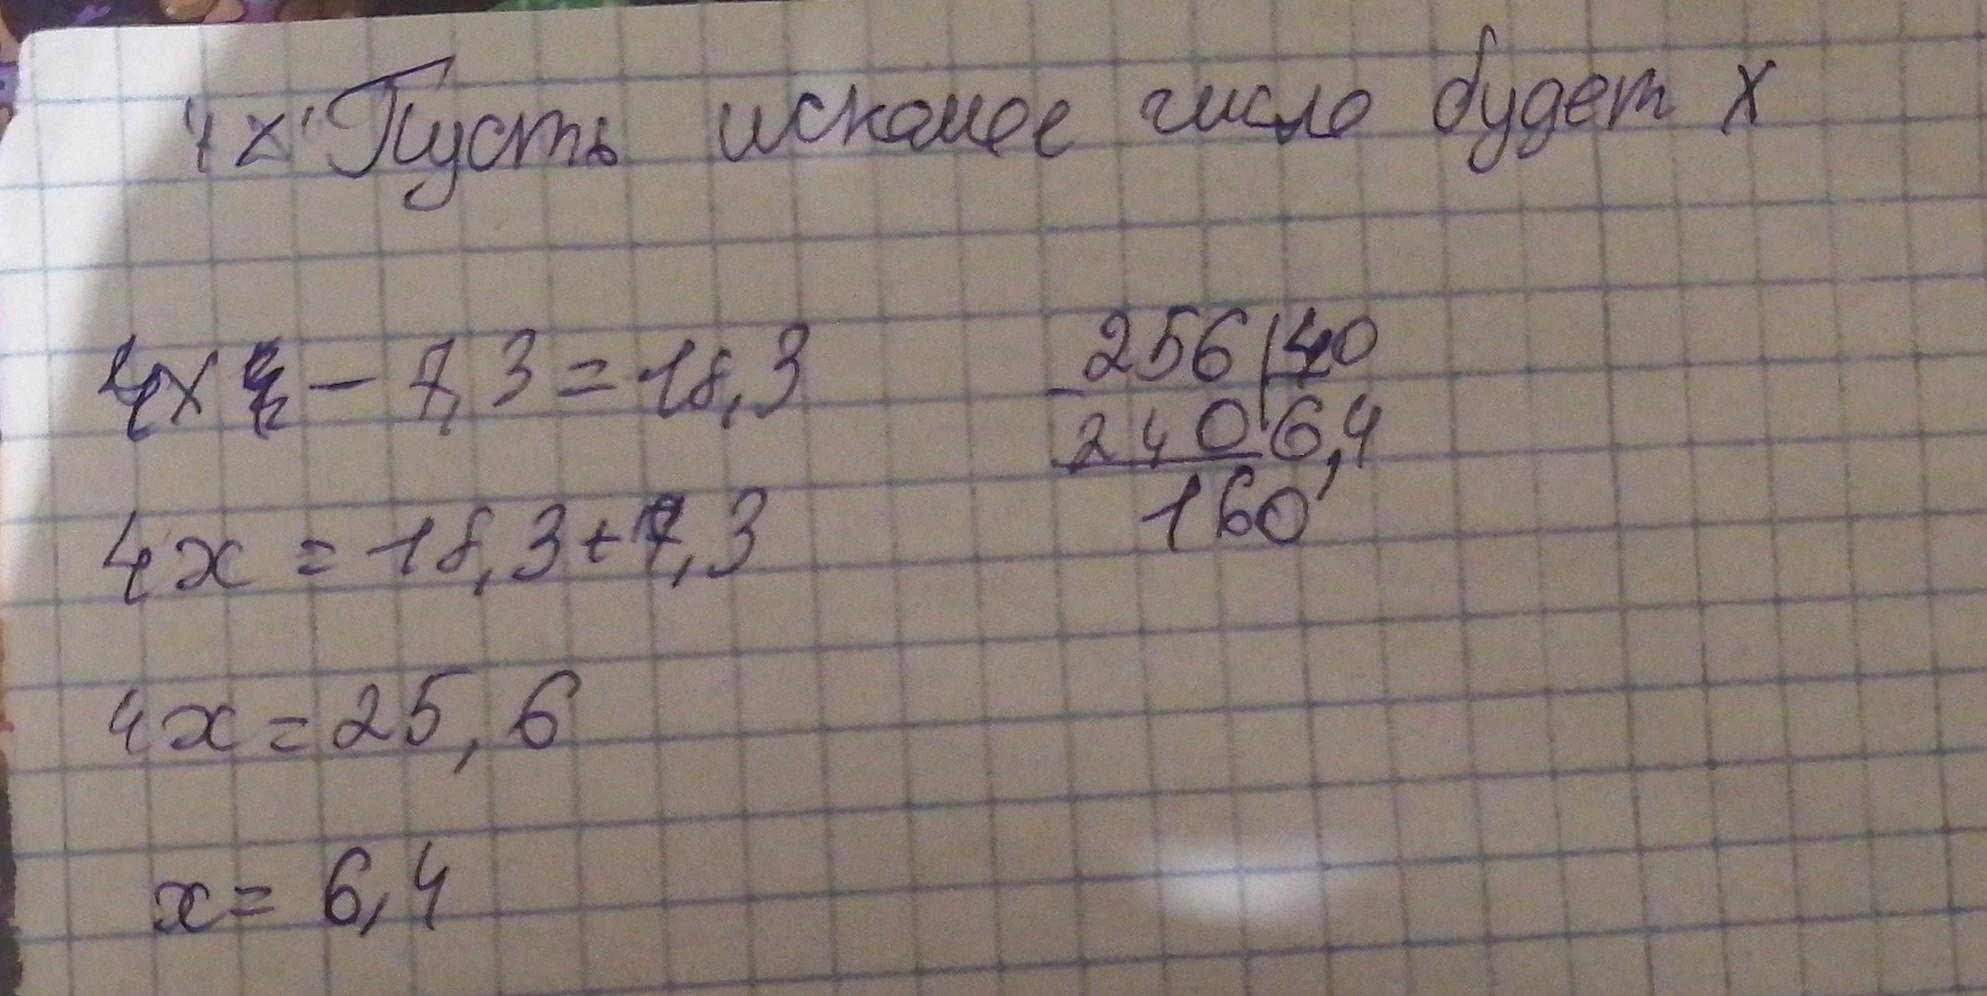 4x Пусть искомое число будет x
4x - 7,3 = 18,3
4x = 18,3 + 7,3
4x = 25,6
x = 6,4
256 | 40
- 240 6,4
160